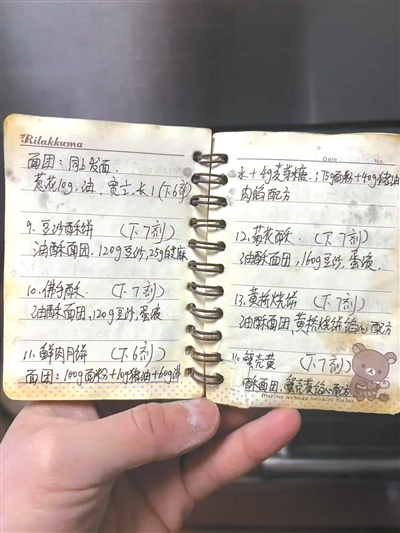 Rilakkuma
面团：同上发面
葱花10g，油，
水1（下6剂）
9. 豆沙酥饼（下7剂）
油酥面团，120g豆沙，25g
10. 佛手酥（下7剂）
油酥面团，120g豆沙，蛋液
11. 鲜肉月饼（下6剂）
面团：100g面粉+10g猪油+60g
Date No.
水+4g麦芽糖；75g面粉+40g猪油
肉馅配方
12. 菊花酥（下7剂）
油酥面团，160g豆沙，蛋液
13. 黄桥烧饼（下7剂）
油酥面团，黄桥烧饼馅心配方
14. 蟹壳黄（下7剂）
酥面团，蟹壳黄馅心配方